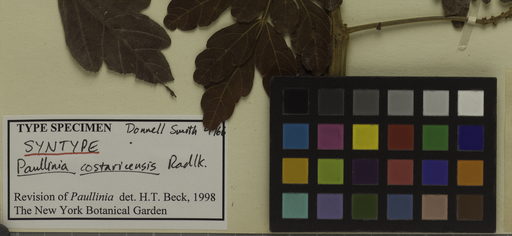 TYPE SPECIMEN Donnell Smith
SYNTYPE
Paullinia costaricensis Radlk.
Revision of Paullinia det. H.T. Beck, 1998
The New York Botanical Garden